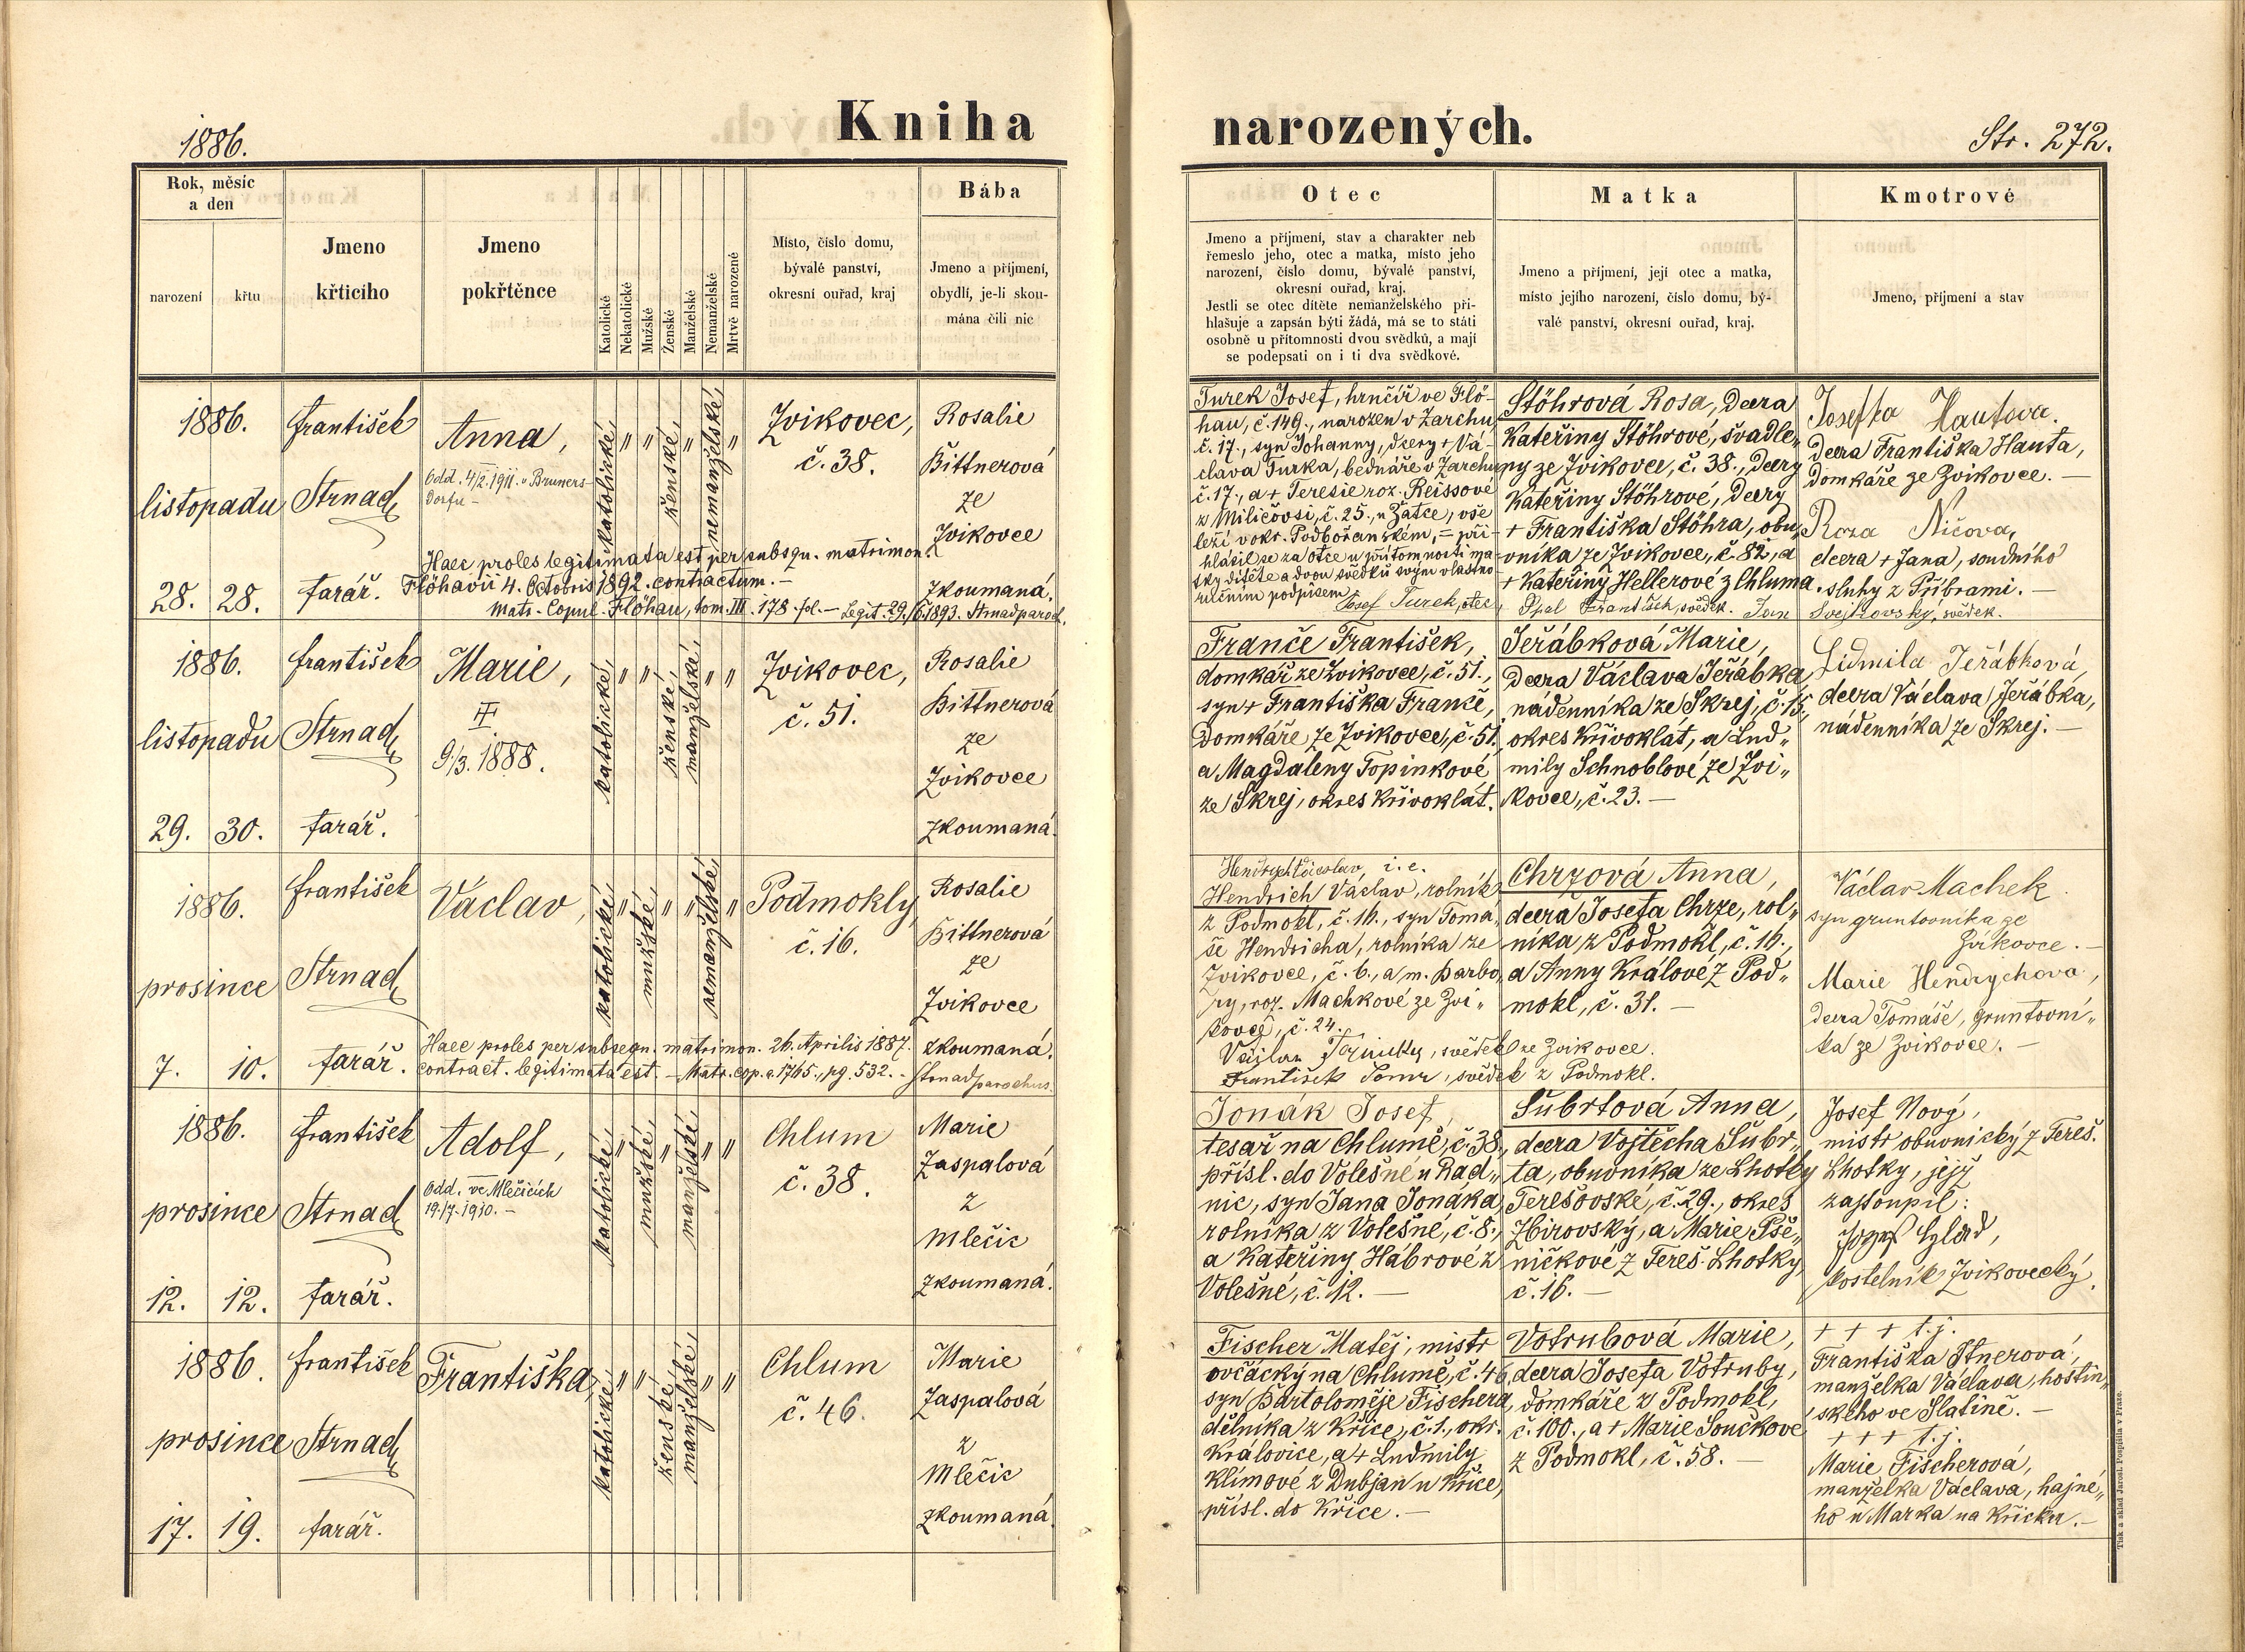 1886.
Kniha narozených.
Str. 272.
Rok, měsíc
a den
narození
křtu
Jmeno
křticího
Jmeno
pokřtěnce
Katolické
Nekatolické
Mužské
Ženské
Manželské
Nemanželské
Mrtvě narozené
Místo, číslo domu,
bývalé panství,
okresní ouřad, kraj
Bába
Jmeno a příjmení,
obydlí, je-li skou-
mána čili nic
Otec
Jmeno a příjmení, stav a charakter neb
řemeslo jeho, otec a matka, místo jeho
narození, číslo domu, bývalé panství,
okresní ouřad, kraj.
Jestli se otec dítěte nemanželského při-
hlašuje a zapsán býti žádá, má se to státi
osobně u přítomnosti dvou svědků, a mají
se podepsati on i ti dva svědkové.
Matka
Jmeno a příjmení, její otec a matka,
místo jejího narození, číslo domu, bý-
valé panství, okresní ouřad, kraj.
Kmotrové
Jmeno, příjmení a stav
1886.
listopadu
28. 28.
František
Strnad,
farář.
Anna,
Odd. 4/2. 1911. v Bruners-
dorfu –
katolické, " " ženské, " nemanželské, "
Zvikovec,
č. 38.
Rosalie
Bittnerová
ze
Zvikovce
Zkoumaná.
Haec proles legitimata est per subsqu. matrimon.
Flöhavii 4. Octobris 1892. contractum. –
Matr. Copul. Flöhau, tom. III. 178. fol. – Legit. 29./6. 1893. Strnad paroch.
Turek Josef, hrnčíř ve Flö-
hau, č. 149., narozen v Žarchu
č. 17., syn Johanny, dcery + Vá-
clava Turka, bednáře v Žarchu
č. 17., a + Teresie roz. Reissové
z Miličovsi, č. 25., u Žatce, vše
leží v okr. Podbořanském, – při-
hlásil se za otce u přítomnosti ma-
tky dítěte a dvou svědků svým vlastno
ručním podpisem
Josef Turek, otec,
Stöhrová Rosa, dcera
Kateřiny Stöhrové, švadle„
ny ze Zvikovce, č. 38., dcery
Kateřiny Stöhrové, dcery
+ Františka Stöhra, obu„
vníka ze Zvikovce, č. 82., a
+ Kateřiny Hellerové z Chluma.
Opal František, svědek. Jan
Josefka Hautova.
dcera Františka Hauta,
domkáře ze Zvikovce. –
Roza Ničova,
dcera + Jana, soudního
sluhy z Příbrami. –
Svejkovský, svědek.
1886.
listopadu
29. 30.
František
Strnad,
farář.
Marie,
9/3. 1888.
katolické, " " ženské, manželské, " "
Zvikovec,
č. 51.
Rosalie
Bittnerová
ze
Zvikovce
zkoumaná.
Franče František,
domkář ze Zvikovce, č. 51.,
syn + Františka Franče,
domkáře ze Zvikovce, č. 51.
a Magdaleny Topinkové
ze Skrej, okres Křivoklát.
Jeřábková Marie,
dcera Václava Jeřábka,
nádenníka ze Skrej, č. 15.,
okres Křivoklát, a Lud„
mily Schnoblové ze Zvi„
kovce, č. 23. –
Lidmila Jeřábková,
dcera Václava Jeřábka,
nádenníka ze Skrej. –
1886.
prosince
7. 10.
František
Strnad,
farář.
Václav,
katolické, " mužské, " " nemanželské, "
Podmokly,
č. 16.
Rosalie
Bittnerová
ze
Zvikovce
zkoumaná.
Haec proles per subsequ. matrimon. 26. Aprilis 1887.
contract. legitimata est. – Matr. cop. a. 1765., pg. 532. – Strnad parochus.
Hendrych Václav, i. e.
Hendrich Václav, rolník
z Podmokl, č. 16., syn Tomá„
še Hendricha, rolníka ze
Zvikovce, č. 6., a m. Barbo„
ry, roz. Machkové ze Zvi„
kovce, č. 24.
svědek ze Zvikovce.
František svědek z Podmokl.
Chrzová Anna,
dcera Josefa Chrze, rol„
níka z Podmokl, č. 16.,
a Anny Králové z Pod„
mokl, č. 31. –
Václav Machek
syn gruntovníka ze
Zvikovce. –
Marie Hendrychova,
dcera Tomáše, gruntovní„
ka ze Zvikovce. –
1886.
prosince
12. 12.
František
Strnad,
farář.
Adolf,
Odd. ve Mlečicích
19./7. 1930. –
katolické, " mužské, " manželské, " "
Chlum
č. 38.
Marie
Zaspalová
z
Mlečic
zkoumaná.
Jonák Josef,
tesař na Chlumě, č. 38.,
přísl. do Volešné u Rad„
nic, syn Jana Jonáka,
rolníka z Volešné, č. 8.,
a Kateřiny Hábrové z
Volešné, č. 12. –
Šubrtová Anna,
dcera Vojtěcha Šubr„
ta, obuvníka ze Lhotky
Terešovské, č. 29., okres
Zbirovský, a Marie Pše„
ničkové z Tereš. Lhotky,
č. 16. –
Josef Nový,
mistr obuvnický z Tereš.
Lhotky, jejž
zastoupil:
kostelník Zvikovecký.
1886.
prosince
17. 19.
František
Strnad,
farář.
Františka,
katolické, " " ženské, manželské, " "
Chlum
č. 46.
Marie
Zaspalová
z
Mlečic
zkoumaná.
Fischer Matěj, mistr
ovčácký na Chlumě, č. 46,
syn Bartoloměje Fischera,
dělníka z Křice, č. 1., okr.
Kralovice, a + Ludmily
Klímové z Dubjan u Křice,
přísl. do Křice. –
Votrubová Marie,
dcera Josefa Votruby,
domkáře z Podmokl,
č. 100., a + Marie Součkové
z Podmokl, č. 58. –
+ + + t. j.
Františka
manželka Václava, hostin„
ského ve Slatině. –
+ + + t. j.
Marie Fischerová,
manželka Václava, hajné„
ho u Marka na Křicku. –
Tisk a sklad Jarosl. Pospíšila v Praze.